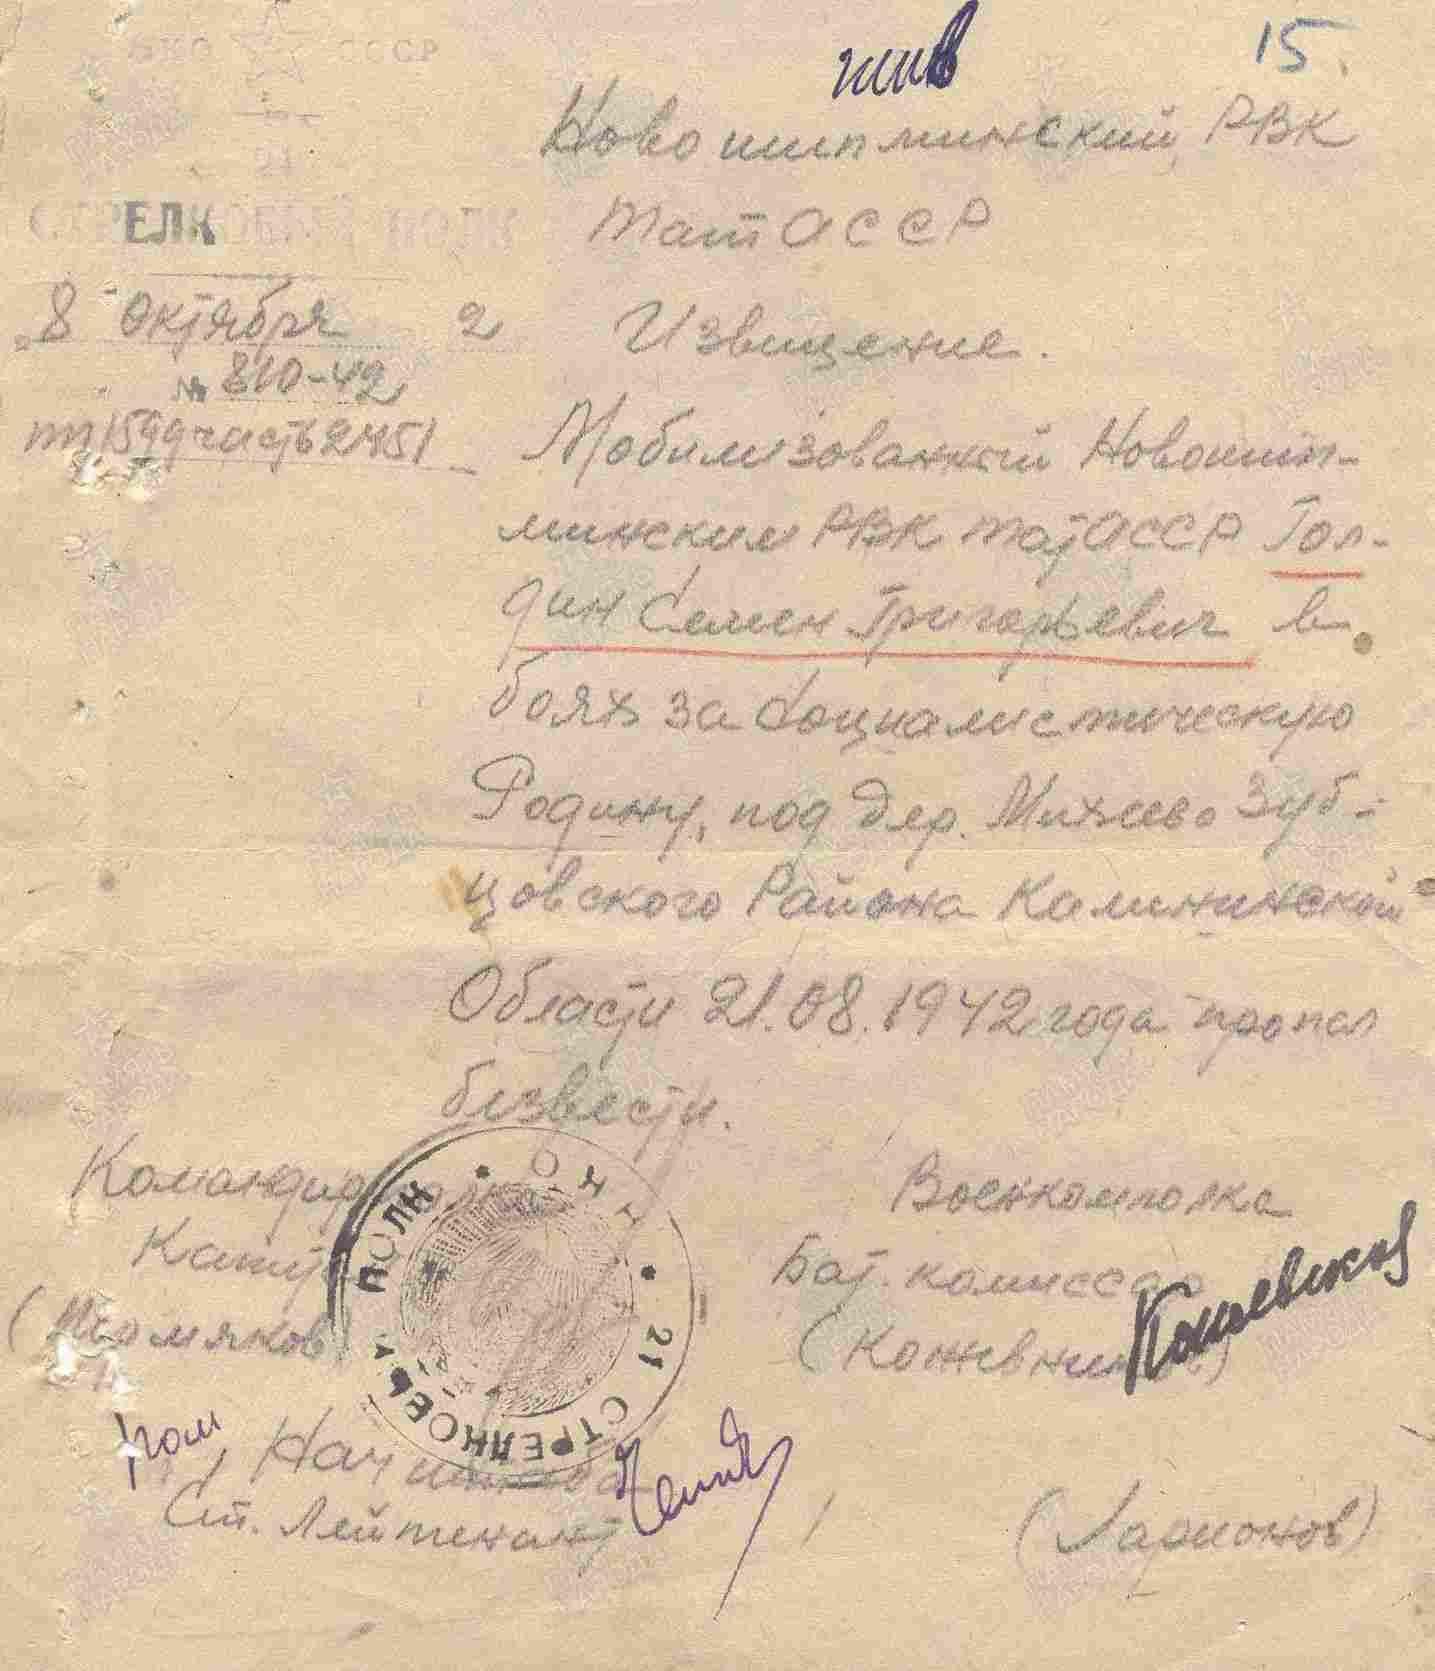 15.
жив
НКО СССР
21
СТРЕЛКОВЫЙ ПОЛК
8 октября 2
№ 810-42
пп 1599 часть 2451
Новошипминский РВК
ТатАССР
Извищение.
Мобилизованный Новошип-
минским РВК ТатАССР Гол-
дин Семен Григорьевич в
боях за Социалистическую
Родину, под дер. Михеево Зуб-
цовского Района Калининской
Области 21.08.1942 года пропал
безвести.
Командир полка
Капит
Военкомполка
Бат. комиссар
(Кожевников)
НКО • 21 СТРЕЛКОВЫЙ ПОЛК •
пом. Нач штаба
Ст. Лейтенант
(Ларионов)
ПАМЯТЬ НАРОДА